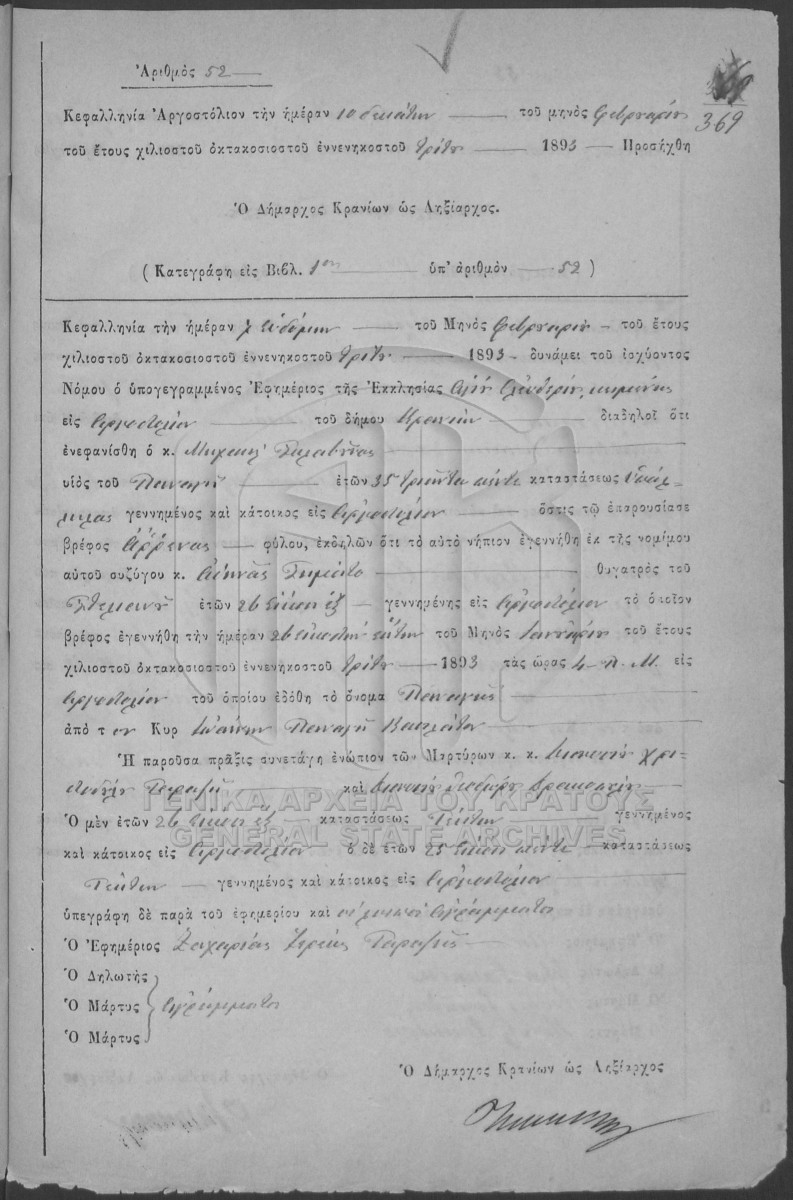 Ἀριθμὸς 52
369
Κεφαλληνία Ἀργοστόλιον τὴν ἡμέραν 10 δεκάτην τοῦ μηνὸς Φεβρουαρίου
τοῦ ἔτους χιλιοστοῦ ὀκτακοσιοστοῦ ἐννενηκοστοῦ τρίτου 1893 Προσήχθη
Ὁ Δήμαρχος Κρανίων ὡς Ληξίαρχος.
(Κατεγράφη εἰς Βιβλ. 1ον ὑπ' ἀριθμὸν 52)
Κεφαλληνία τὴν ἡμέραν 7 ἑβδόμην τοῦ Μηνὸς Φεβρουαρίου τοῦ ἔτους
χιλιοστοῦ ὀκτακοσιοστοῦ ἐννενηκοστοῦ τρίτου 1893 δυνάμει τοῦ ἰσχύοντος
Νόμου ὁ ὑπογεγραμμένος Ἐφημέριος τῆς Ἐκκλησίας
εἰς Ἀργοστόλιον τοῦ δήμου Κρανίων διαδηλοῖ ὅτι
ἐνεφανίσθη ὁ κ. Μιχαὴλ
υἱὸς τοῦ Παναγῆ ἐτῶν 35 τριῆντα πέντε καταστάσεως Ὑπάλ-
ληλος γεννημένος καὶ κάτοικος εἰς Ἀργοστόλιον ὅστις τῷ ἐπαρουσίασε
βρέφος ἄρρενος φύλου, ἐκδηλῶν ὅτι τὸ αὐτὸ νήπιον ἐγεννήθη ἐκ τῆς νομίμου
αὐτοῦ συζύγου κ. θυγατρὸς τοῦ
ἐτῶν 26 εἴκοσι ἕξ γεννημένης εἰς Ἀργοστόλιον τὸ ὁποῖον
βρέφος ἐγεννήθη τὴν ἡμέραν 26 εἰκοστὴν ἕκτην τοῦ Μηνὸς Ἰανουαρίου τοῦ ἔτους
χιλιοστοῦ ὀκτακοσιοστοῦ ἐννενηκοστοῦ τρίτου 1893 τὰς ὥρας 4 π. μ. εἰς
Ἀργοστόλιον τοῦ ὁποίου ἐδόθη τὸ ὄνομα Παναγῆς
ἀπὸ τὸν Κυρ Ἰωάννην Παναγῆ
Ἡ παροῦσα πρᾶξις συνετάγη ἐνώπιον τῶν Μαρτύρων κ. κ.
καὶ
ΓΕΝΙΚΑ ΑΡΧΕΙΑ ΤΟΥ ΚΡΑΤΟΥΣ
Ὁ μὲν ἐτῶν 26 εἴκοσι ἕξ καταστάσεως γεννημένος
GENERAL STATE ARCHIVES
καὶ κάτοικος εἰς Ἀργοστόλιον ὁ δὲ ἐτῶν 25 εἴκοσι πέντε καταστάσεως
γεννημένος καὶ κάτοικος εἰς Ἀργοστόλιον
ὑπεγράφη δὲ παρὰ τοῦ ἐφημερίου καὶ οἱ λοιποὶ ἀγράμματοι
Ὁ Ἐφημέριος Ζαχαρίας Ἱερεὺς
Ὁ Δηλωτὴς
Ὁ Μάρτυς ἀγράμματοι
Ὁ Μάρτυς
Ὁ Δήμαρχος Κρανίων ὡς Ληξίαρχος